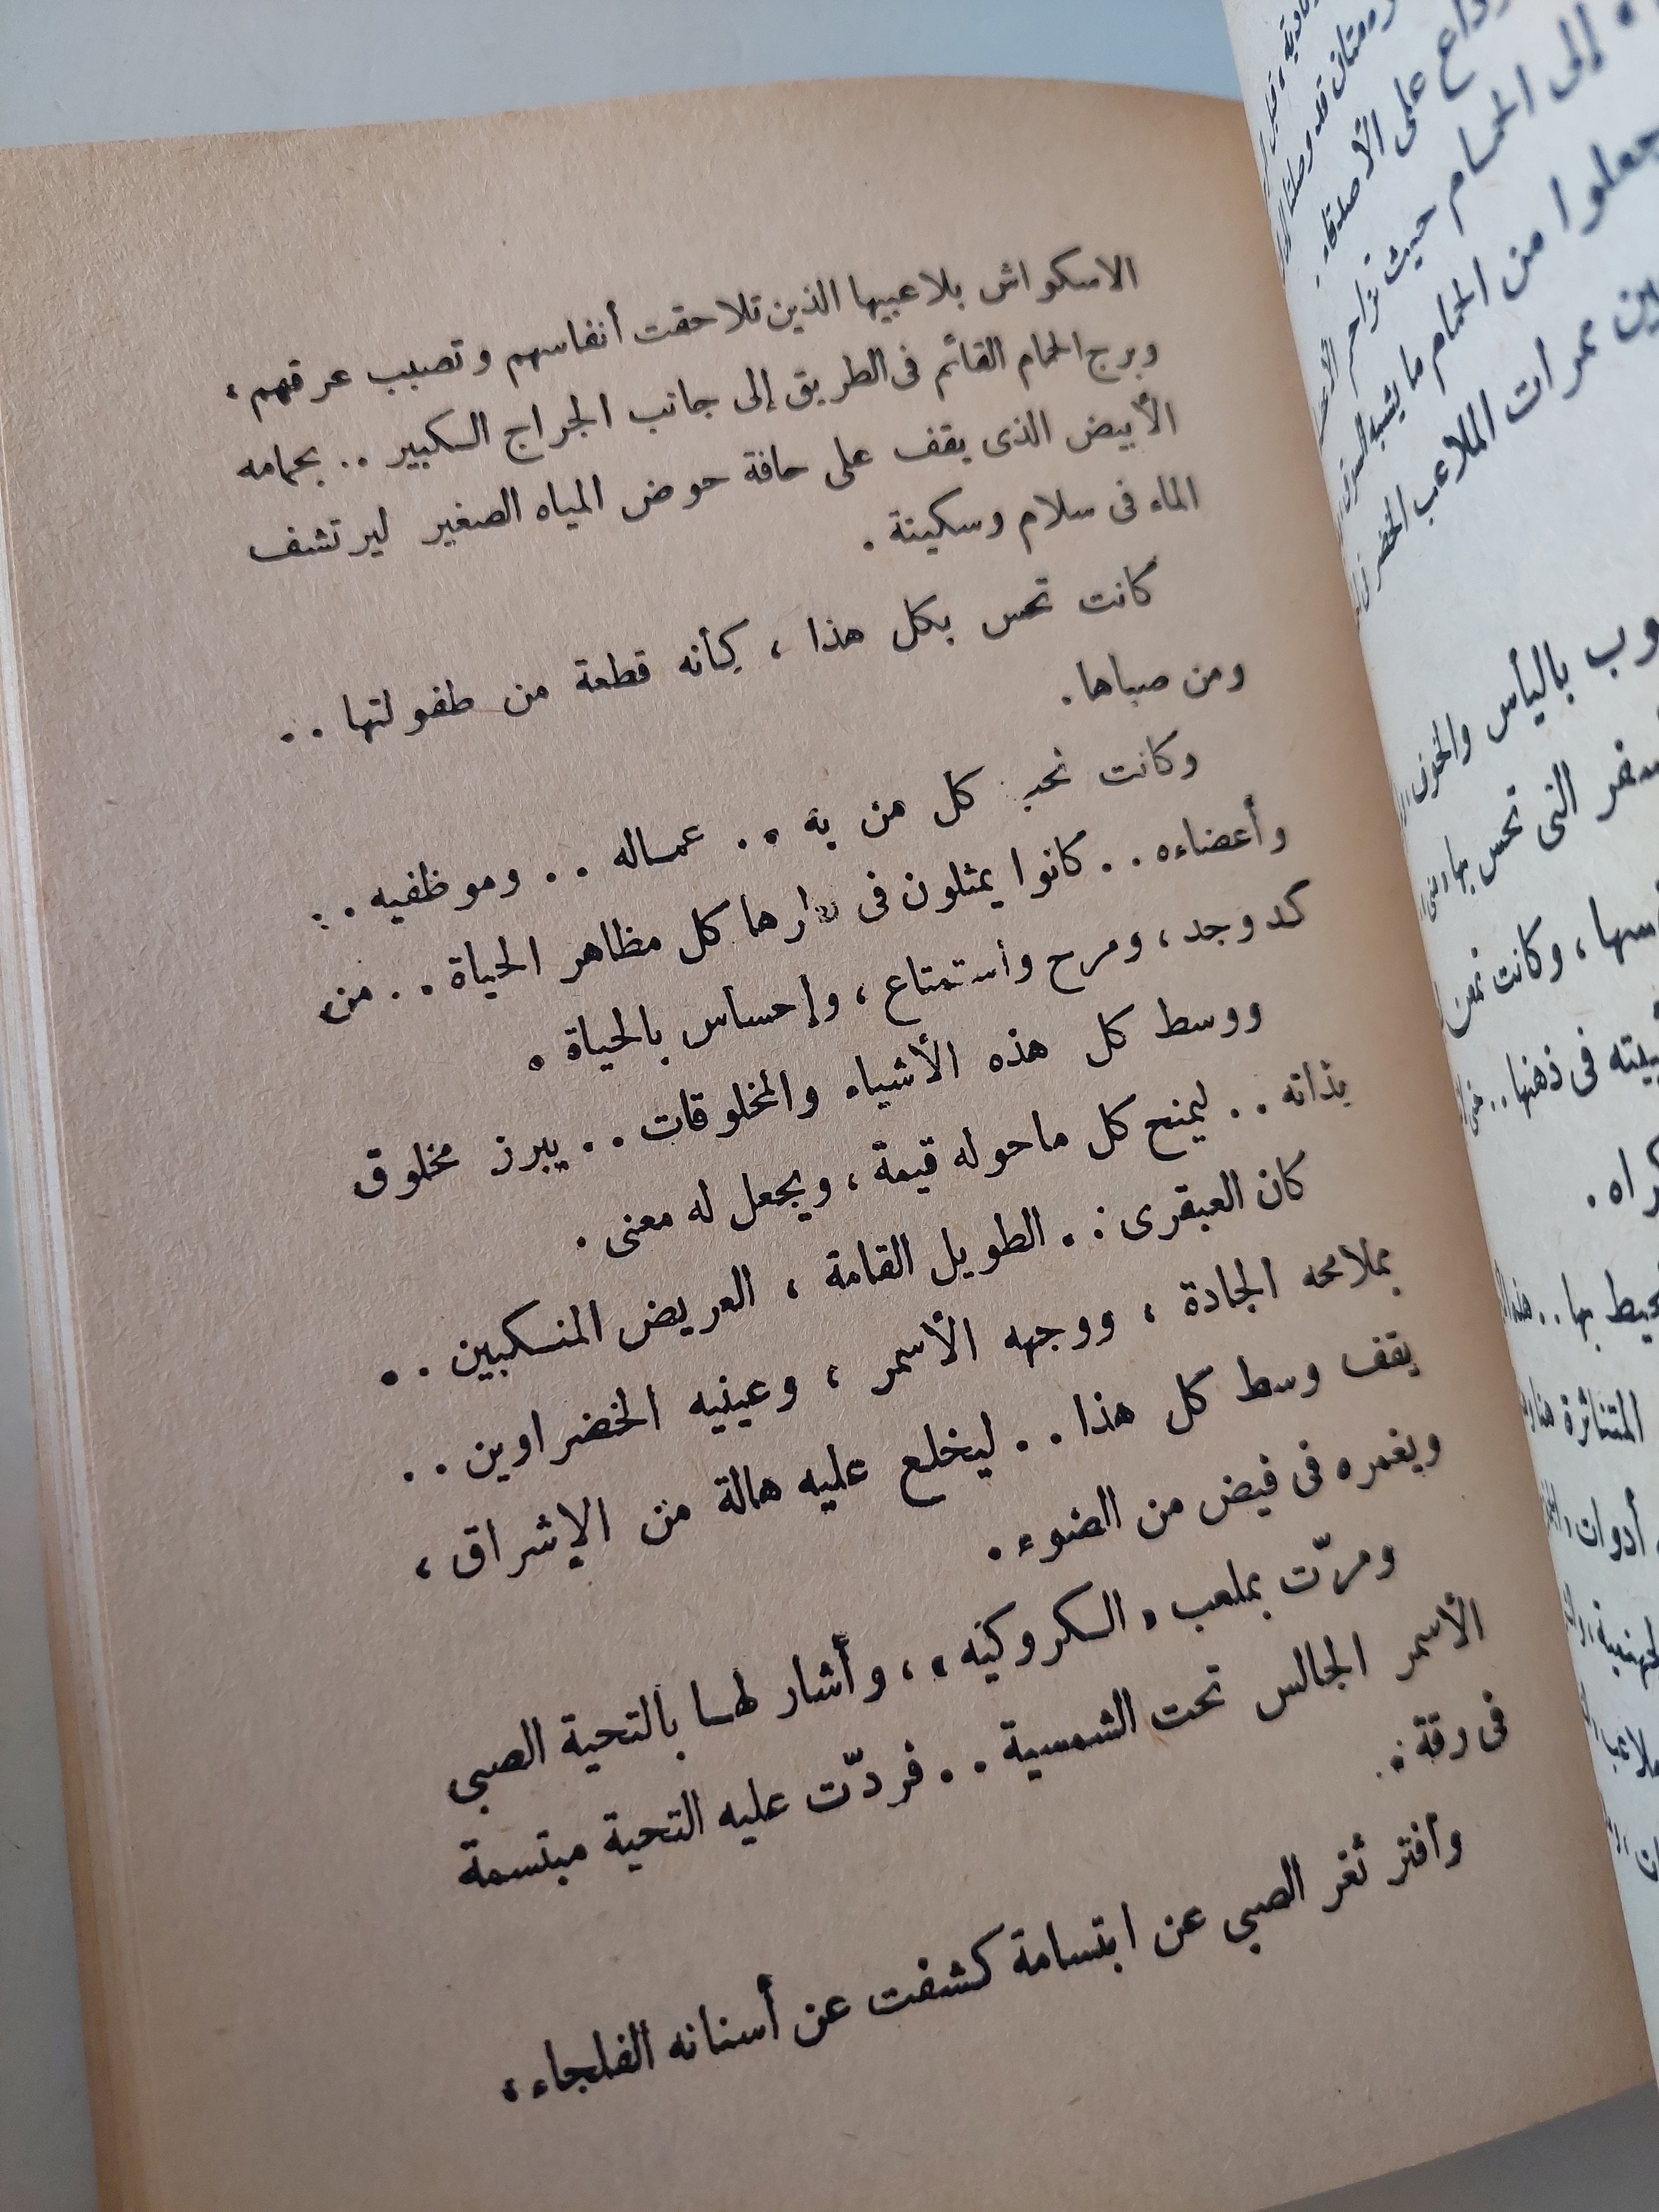 الاسكواش بلاعبيها الذين تلاحقت أنفاسهم وتصبب عرقهم ،
وبرج الحمام القائم فى الطريق إلى جانب الجراج الكبير .. بحمامه
الأبيض الذى يقف على حافة حوض المياه الصغير ليرتشف
الماء فى سلام وسكينة .
كانت تحس بكل هذا ، كأنه قطعة من طفولتها ..
ومن صباها .
وكانت تحب كل من به .. عماله .. وموظفيه ..
وأعضاءه .. كانوا يمثلون فى دارها كل مظاهر الحياة .. من
كد وجد ، ومرح وأستمتاع ، وإحساس بالحياة .
ووسط كل هذه الأشياء والمخلوقات .. يبرز مخلوق
بذاته .. ليمنح كل ماحوله قيمة ، ويجعل له معنى .
كان العبقرى .. الطويل القامة ، العريض المنكبين ..
بملامحه الجادة ، ووجهه الأسمر ، وعينيه الخضراوين ..
يقف وسط كل هذا .. ليخلع عليه هالة من الإشراق ،
ويغمره فى فيض من الضوء .
ومرّت بملعب « الكروكيه » ، وأشار لها بالتحية الصبى
الأسمر الجالس تحت الشمسية .. فردّت عليه التحية مبتسمة
فى رقة .
وافتر ثغر الصبى عن ابتسامة كشفت عن أسنانه الفلجاء ،
على الأصدقاء .
إلى الحمام حيث تزاحم
جعلوا من الحمام ما يشبه
ممرات الملاعب
باليأس والحزن
التى تحس بها
، وكانت تمعن
فى ذهنها ..
بها ..
المتناثرة
أدوات